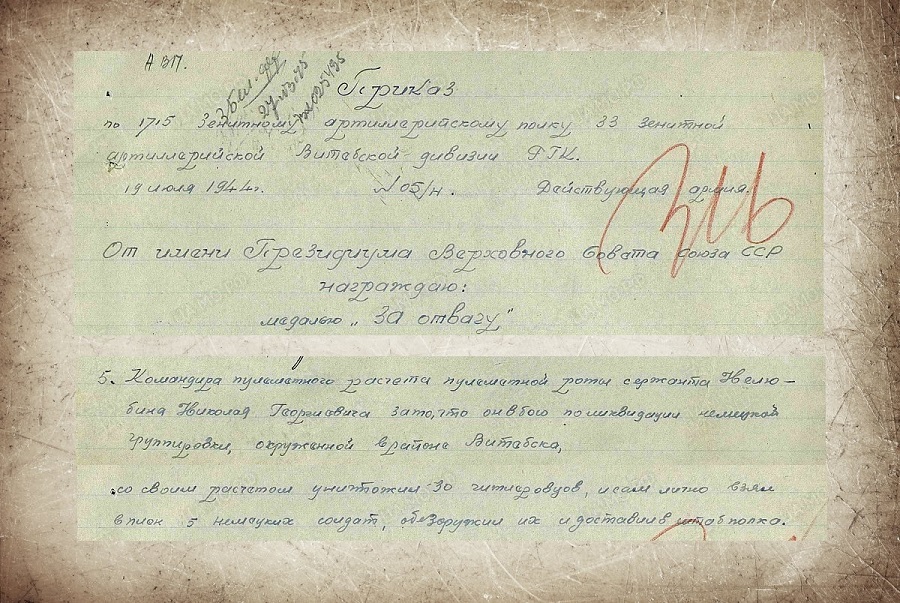 А ВП.
Приказ
по 1715 Зенитному артиллерийскому полку 33 зенитной
артиллерийской Витебской дивизии РГК.
19 июля 1944г. №05/н. Действующая армия.
От имени Президиума Верховного Совета Союза ССР
награждаю:
медалью „За отвагу"
5. Командира пулеметного расчета пулеметной роты сержанта Нелю-
бина Николая Георгиевича за то, что он в бою по ликвидации немецкой
группировки, окруженной в районе Витебска,
со своим расчетом уничтожил 30 гитлеровцев, и сам лично взял
в плен 5 немецких солдат, обезоружил их и доставил в штаб полка.